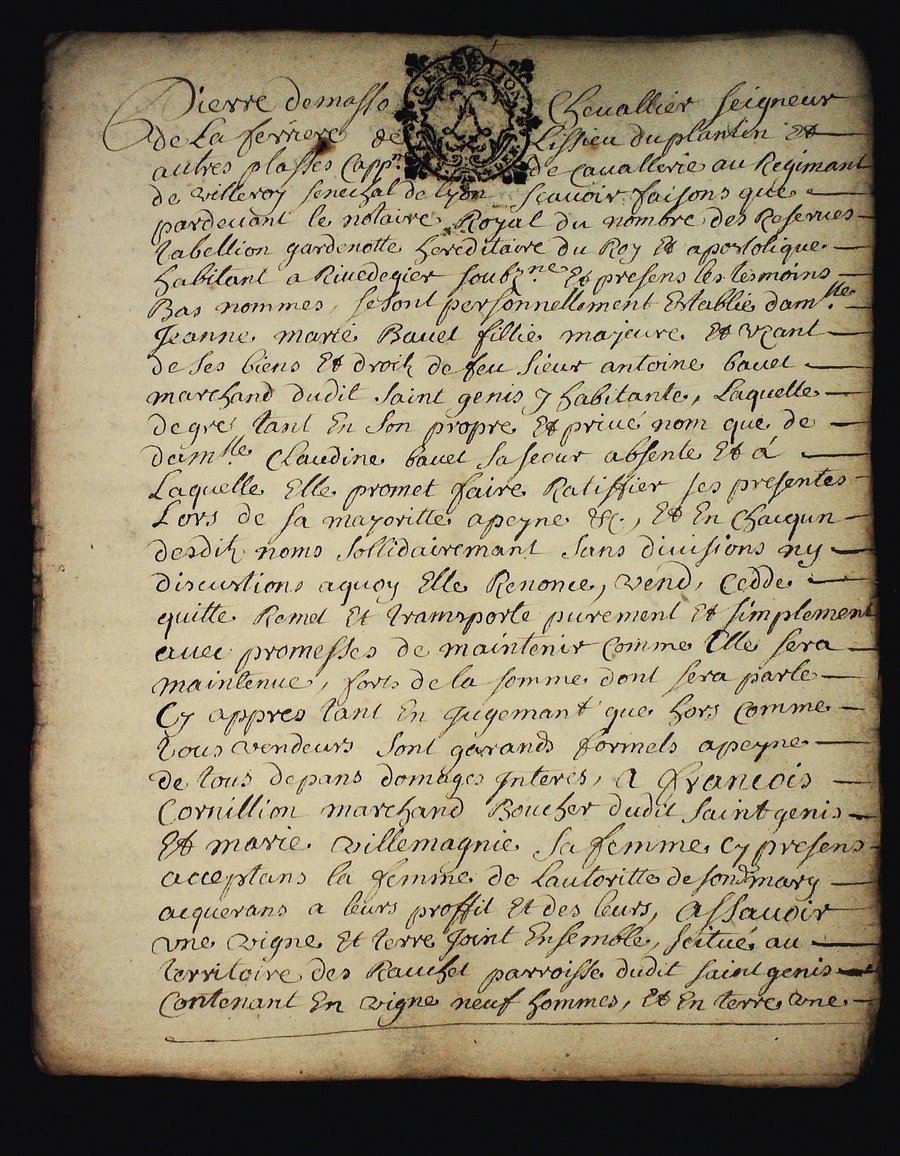 Pierre demasso Chevallier seigneur
de La ferriere de Lissieu du plantin et
autres plasses Capp.ne de Cavallerie au Regimant
de villeroy senechal de lyon scavoir faisons que
pardevant le notaire Royal du nombre des Reserves
tabellion gardenotte hereditaire du Roy Et apostolique
habitant a Rivedegier soubz.ne Et presens les tesmoins
Bas nommes, se sont personnellement Establie dam.lle
Jeanne marie Bavet fillie majeure Et uzant
de ses biens Et droitz de feu sieur antoine bavet
marchand dudit saint genis y habitante, Laquelle
de gre tant En son propre Et privé nom que de
dam.lle Claudine bavet sa seour absente Et á
Laquelle Elle promet faire Ratiffier ses presentes
Lors de sa mayoritte apeyne &c, Et En Chacqun
desditz noms sollidairemant sans divisions ny
discustions aquoy Elle Renonce, vend, Cedde
quitte Remet Et transporte purement Et simplement
avec promesses de maintenir Comme Elle sera
maintenue, forts de la somme dont sera parle
Cy appres tant En Jugemant que hors Comme
tous vendeurs sont garands formels apeyne
de tous depans domages Interes, A francois
Cornillion marchand Boucher dudit saint genis
Et marie villemagnie sa femme Cy presens
acceptans la femme de Lautoritte de sondt mary
acquerans a leurs proffit Et des leurs, Assavoir
vne vigne Et terre Joint Ensemble, scitué au
territoire des Rauchet parroisse dudit saint genis
Contenant En vigne neuf hommes, Et En terre vne
GENE LION